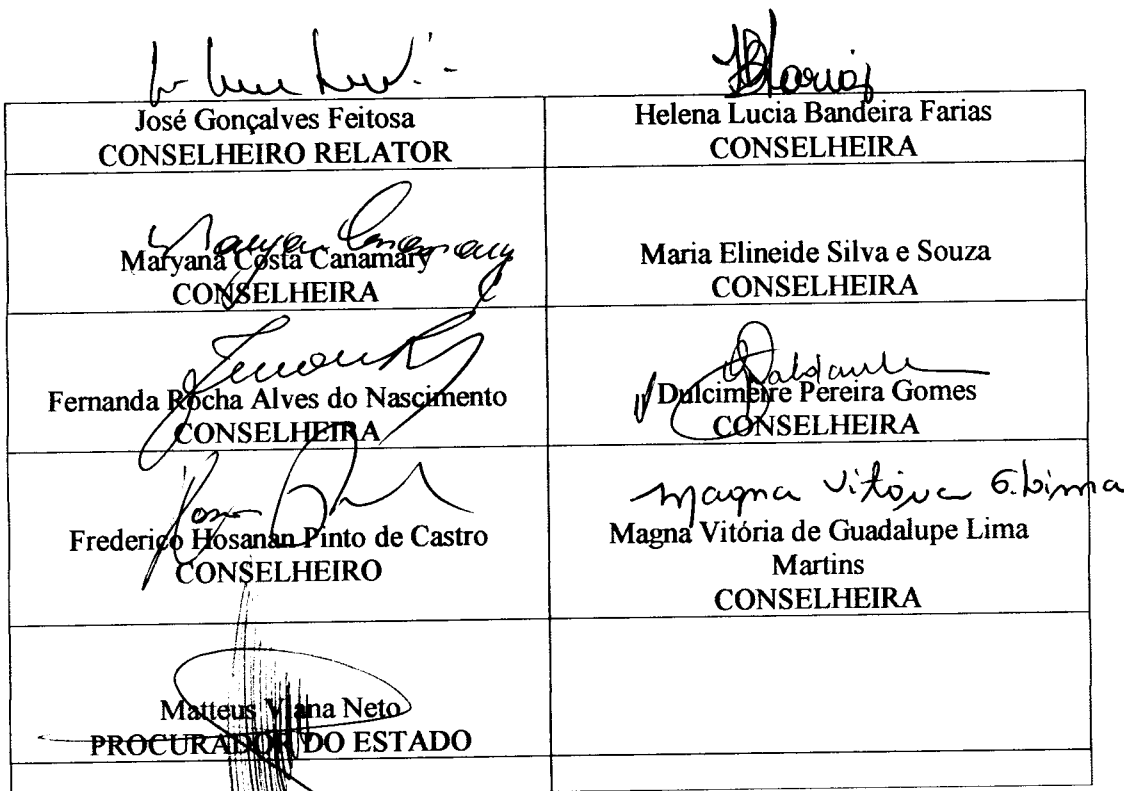 José Gonçalves Feitosa
CONSELHEIRO RELATOR
Helena Lucia Bandeira Farias
CONSELHEIRA
Maryana Costa Canamary
CONSELHEIRA
Maria Elineide Silva e Souza
CONSELHEIRA
Fernanda Rocha Alves do Nascimento
CONSELHEIRA
Dulcimeire Pereira Gomes
CONSELHEIRA
Frederico Hosanan Pinto de Castro
CONSELHEIRO
Magna Vitória G. Lima
Magna Vitória de Guadalupe Lima
Martins
CONSELHEIRA
Matteus Viana Neto
PROCURADOR DO ESTADO